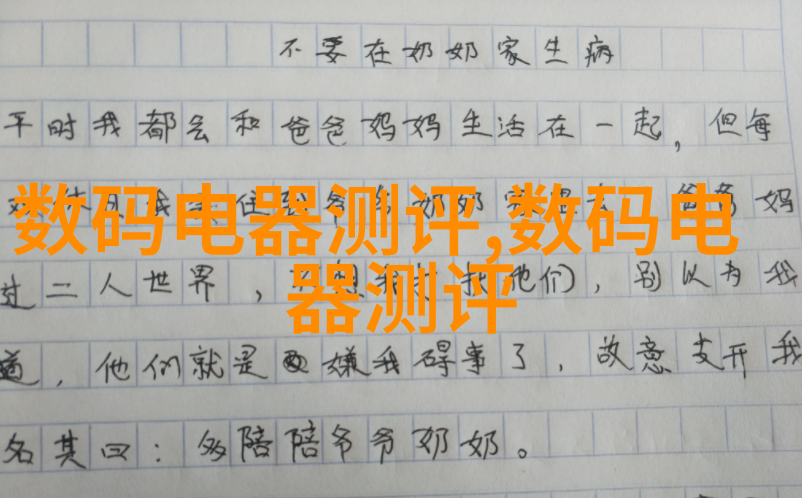 不要在奶奶家生病
平时我都会和爸爸妈妈生活在一起，但每
住 爷 奶奶家 妈
数码电器测评,数码电
过二人世界， 他们，别以为我
器测评
道，他们就是嫌我碍事了，故意支开我
名其曰：多陪陪爷爷奶奶。